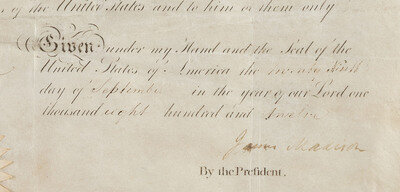 of the United States and to him or them only
Given under my Hand and the Seal of the
United States of America the twenty Ninth
day of September in the year of our Lord one
thousand eight hundred and twelve
James Madison
By the President.